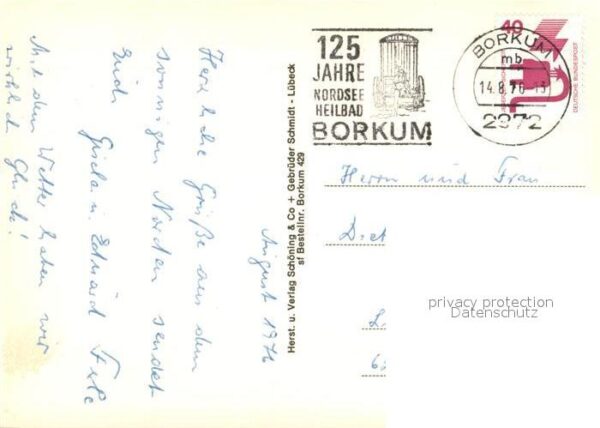 August 1976
Herzliche Grüße aus dem
sonnigen Norden sendet
Euch
Gisela u. Eduard
Mit dem Wetter haben wir
wirklich Glück!
Herst. u. Verlag Schöning & Co + Gebrüder Schmidt - Lübeck
sf Bestellnr. Borkum 429
125
JAHRE
NORDSEE
HEILBAD
BORKUM
BORKUM
mb
14.8.76-13
2972
40
DEUTSCHE BUNDESPOST
Herrn und Frau
privacy protection
Datenschutz